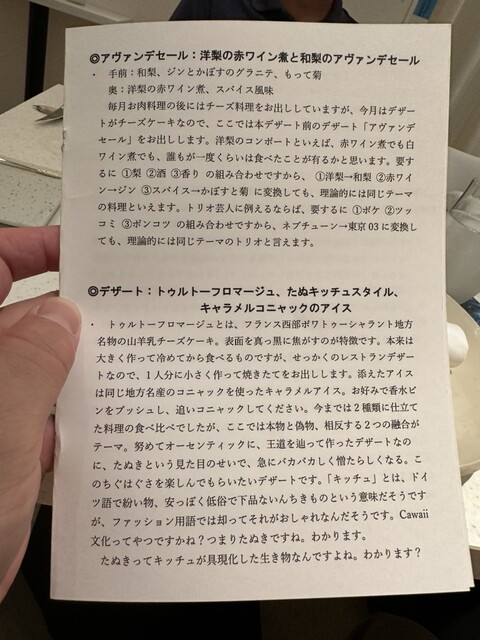 ◎アヴァンデセール：洋梨の赤ワイン煮と和梨のアヴァンデセール
・　手前：和梨、ジンとかぼすのグラニテ、もって菊
奥：洋梨の赤ワイン煮、スパイス風味
毎月お肉料理の後にはチーズ料理をお出ししていますが、今月はデザー
トがチーズケーキなので、ここでは本デザート前のデザート「アヴァンデ
セール」をお出しします。洋梨のコンポートといえば、赤ワイン煮でも白
ワイン煮でも、誰もが一度くらいは食べたことが有るかと思います。要す
るに ①梨 ②酒 ③香り の組み合わせですから、 ①洋梨→和梨 ②赤ワイ
ン→ジン ③スパイス→かぼすと菊 に変換しても、理論的には同じテーマ
の料理といえます。トリオ芸人に例えるならば、要するに ①ボケ ②ツッ
コミ ③ポンコツ の組み合わせですから、ネプチューン→東京 03 に変換し
ても、理論的には同じテーマのトリオと言えます。
◎デザート：トゥルトーフロマージュ、たぬキッチュスタイル、
キャラメルコニャックのアイス
・　トゥルトーフロマージュとは、フランス西部ポワトゥーシャラント地方
名物の山羊乳チーズケーキ。表面を真っ黒に焦がすのが特徴です。本来は
大きく作って冷めてから食べるものですが、せっかくのレストランデザー
トなので、1 人分に小さく作って焼きたてをお出しします。添えたアイス
は同じ地方名産のコニャックを使ったキャラメルアイス。お好みで香水ビ
ンをプッシュし、追いコニャックしてください。今までは２種類に仕立て
た料理の食べ比べでしたが、ここでは本物と偽物、相反する２つの融合が
テーマ。努めてオーセンティックに、王道を辿って作ったデザートなの
に、たぬきという見た目のせいで、急にバカバカしく憎たらしくなる。こ
のちぐはぐさを楽しんでもらいたいデザートです。「キッチュ」とは、ドイ
ツ語で紛い物、安っぽく低俗で下品ないんちきものという意味だそうです
が、ファッション用語では却ってそれがおしゃれなんだそうです。Cawaii
文化ってやつですかね？つまりたぬきですね。わかります。
たぬきってキッチュが具現化した生き物なんですよね。わかります？